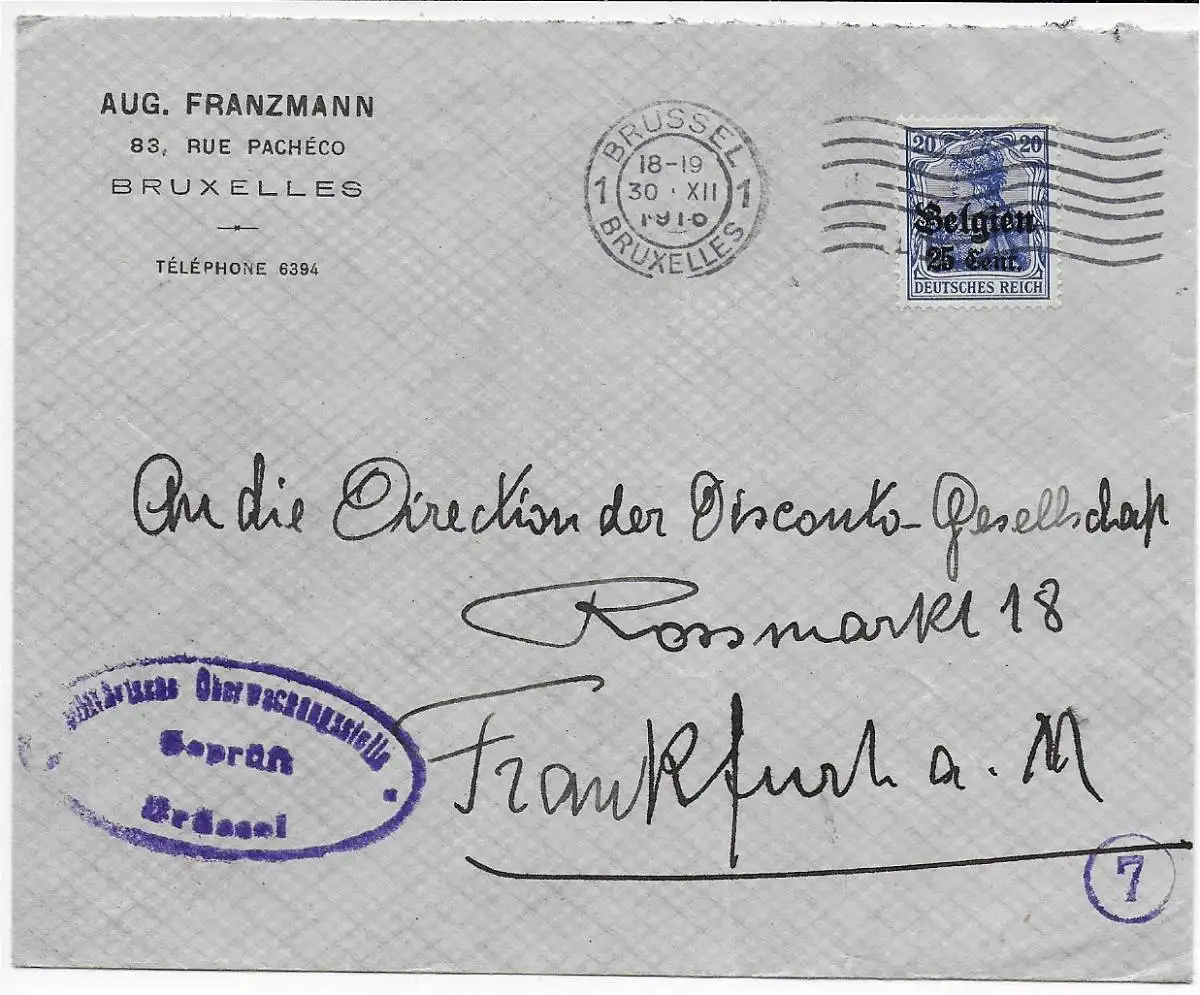 AUG. FRANZMANN
83, RUE PACHÉCO
BRUXELLES
TÉLÉPHONE 6394
BRÜSSEL
18-19
1 30 · XII 1
1916
BRUXELLES
20 20
Belgien
25 Cent.
DEUTSCHES REICH
An die Direction der Disconto-Gesellschaft
Rossmarkt 18
Frankfurt a. M
Militärische Überwachungsstelle
Geprüft
Brüssel
7